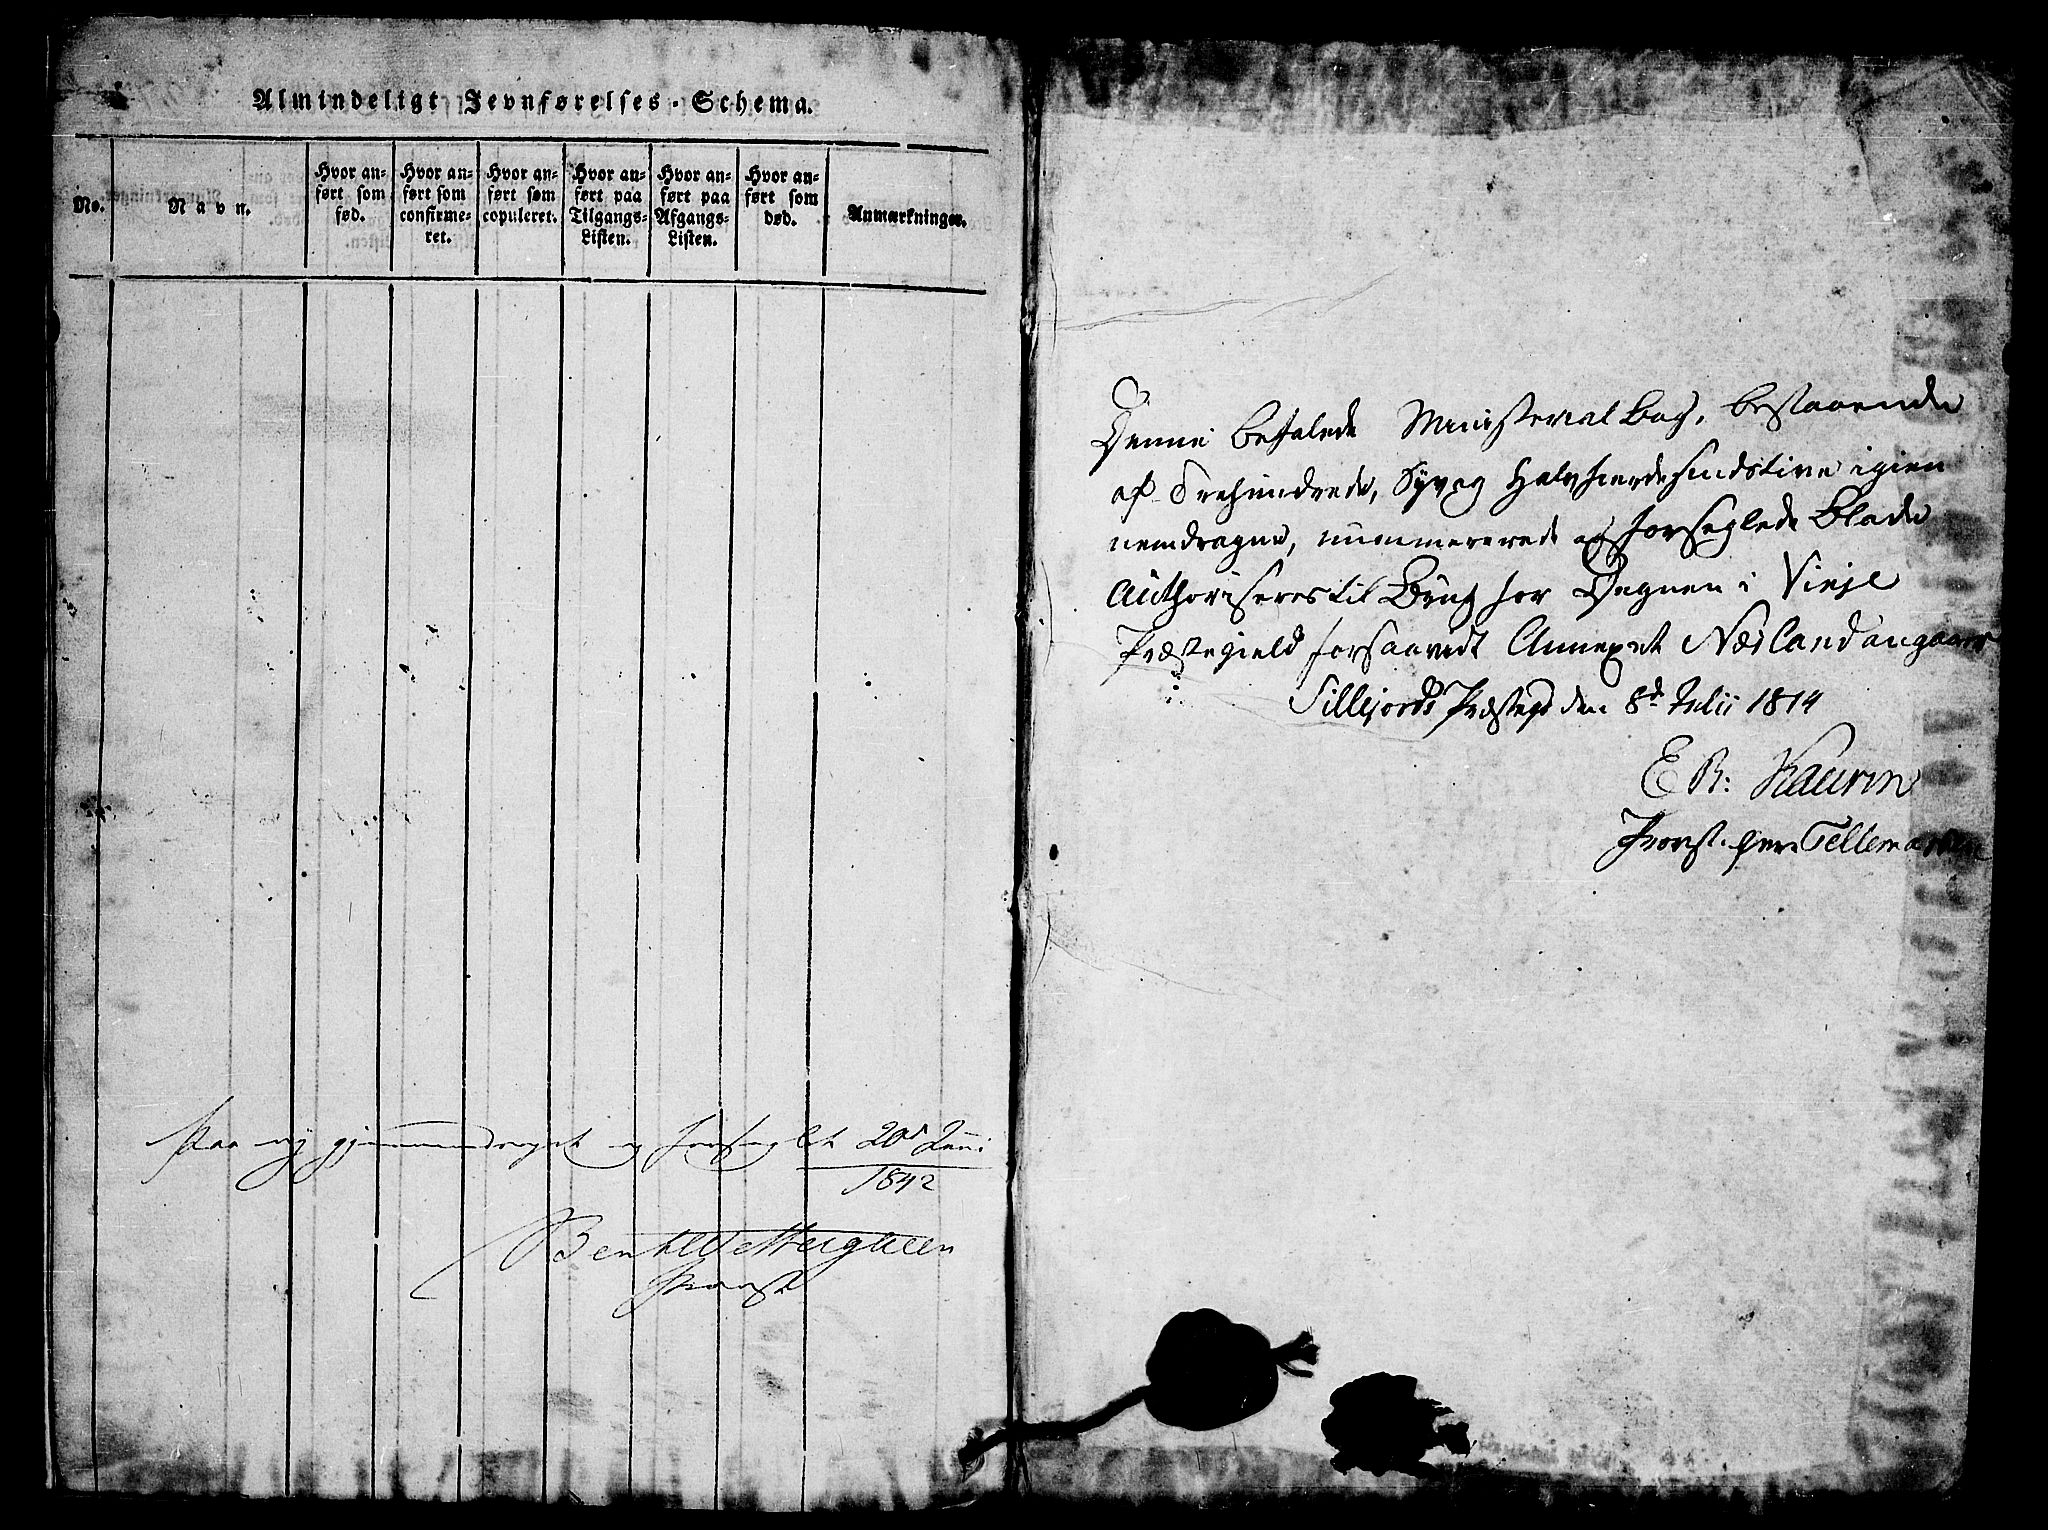 Almindeligt Jevnførelses-Schema.
No.
Navn.
Hvor an-
ført som
fød.
Hvor an-
ført som
confirme-
ret.
Hvor an-
ført som
copuleret.
Hvor an-
ført paa
Tilgangs-
Listen.
Hvor an-
ført paa
Afgangs-
Listen.
Hvor an-
ført som
død.
Anmærkninger.
Paa ny gjennemdraget og forseglet 20d Juni
1842
Provst
Denne befalede Ministerial Bog, bestaaende
af Trehundrede, Syv og Halvfierdesindstive igien
nemdragne, nummererede og forseglede Blade
Authoriseres til Brug for Degnen i Vinje
Præstegield forsaavidt Annexet Næsland angaaer
Sillejords Præstegd den 8d Julii 1814
E R: Kaurin
Provst over Tellemarken